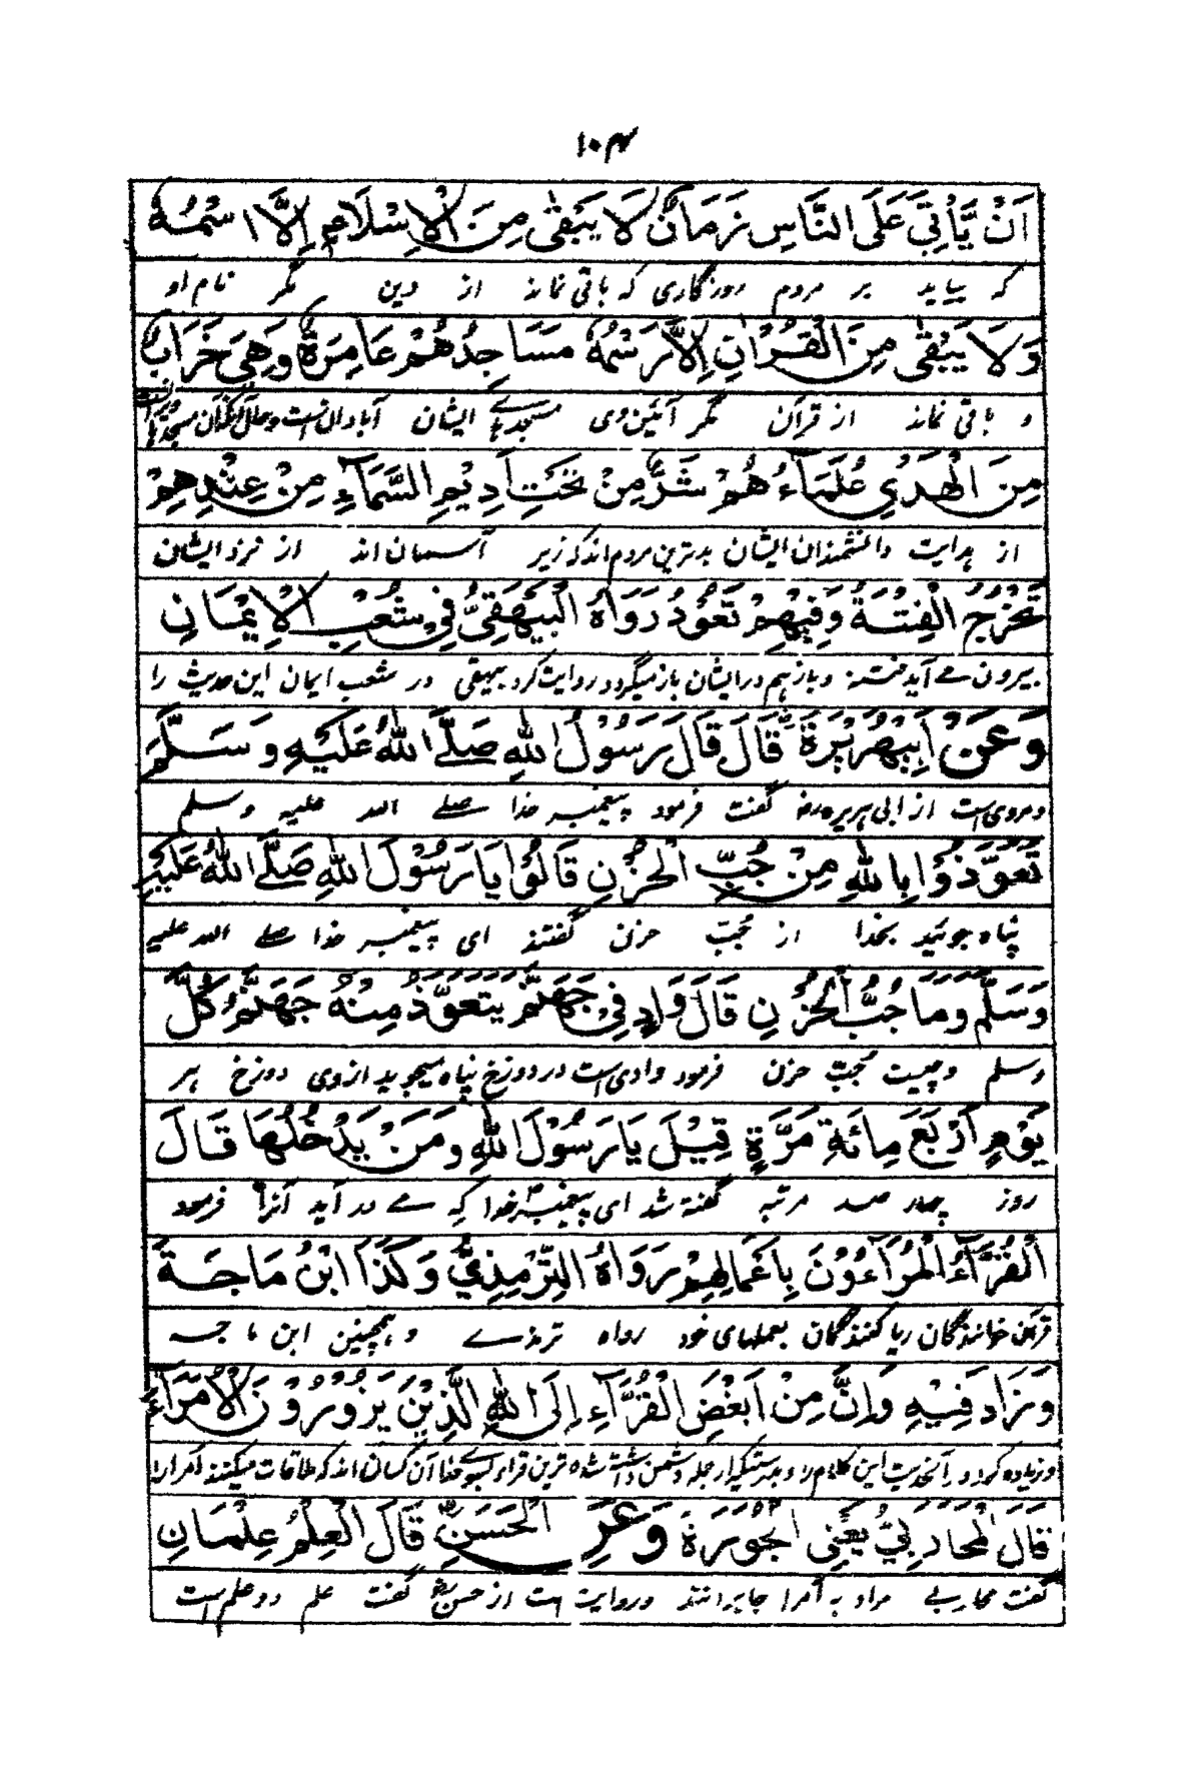 ١٠٤
اَنْ يَّأْتِيَ عَلَى النَّاسِ زَمَانٌ لَا يَبْقٰى مِنَ الْاِسْلَامِ اِلَّا اسْمُهٗ
که بیاید بر مردم روزگاری که باقی نماند از دین مگر نام او
وَلَا يَبْقٰى مِنَ الْقُرْاٰنِ اِلَّا رَسْمُهٗ مَسَاجِدُهُمْ عَامِرَةٌ وَهِيَ خَرَابٌ
و باقی نماند از قرآن مگر آئین وی مسجدهائے ایشان آبادان است
مِنَ الْهُدٰى عُلَمَآءُ هُمْ شَرُّ مِنْ تَحْتِ اَدِيْمِ السَّمَآءِ مِنْ عِنْدِهِمْ
از هدایت دانشمندان ایشان بدترین مردم اند که زیر آسمان اند از نزد ایشان
تَخْرُجُ الْفِتْنَةُ وَفِيْهِمْ تَعُوْدُ رَوَاهُ الْبَيْهَقِيُّ فِيْ شُعَبِ الْاِيْمَانِ
بیرون مے آید فتنه و باز هم در ایشان باز میگردد روایت کرد بیهقی در شعب ایمان این حدیث را
وَعَنْ اَبِيْهُرَيْرَةَ قَالَ قَالَ رَسُوْلُ اللهِ صَلَّى اللهُ عَلَيْهِ وَسَلَّمَ
و مروی است از ابی هریره رض گفت فرمود پیغمبر خدا صلے الله علیه وسلم
تَعَوَّذُوْا بِاللهِ مِنْ جُبِّ الْحُزْنِ قَالُوْا يَا رَسُوْلَ اللهِ صَلَّى اللهُ عَلَيْهِ
پناه جوئید بخدا از جُبّ حزن گفتند ای پیغمبر خدا صلے الله علیه
وَسَلَّمَ وَمَا جُبُّ الْحُزْنِ قَالَ وَادٍ فِيْ جَهَنَّمَ يَتَعَوَّذُ مِنْهُ جَهَنَّمُ كُلَّ
وسلم و چیست جُبّ حزن فرمود وادی است در دوزخ پناه میجوید از وی دوزخ هر
يَوْمٍ اَرْبَعَ مِائَةِ مَرَّةٍ قِيْلَ يَا رَسُوْلَ اللهِ وَمَنْ يَدْخُلُهَا قَالَ
روز چهار صد مرتبه گفته شد ای پیغمبر خدا که مے در آید آنرا فرمود
الْقُرَّآءُ الْمُرَآءُوْنَ بِاَعْمَالِهِمْ رَوَاهُ التِّرْمِذِيُّ وَكَذَا ابْنُ مَاجَةَ
قرآن خوانندگان ریا کنندگان بعملهای خود رواه ترمذے و همچنین ابن ماجه
وَزَادَ فِيْهِ وَاِنَّ مِنْ اَبْغَضِ الْقُرَّآءِ اِلَى اللهِ الَّذِيْنَ يَزُوْرُوْنَ الْاُمَرَآءَ
و زیاده کرد در آنحدیث این کلام را و بدرستیکه از جمله دشمن داشته شده ترین قراء بسوے خدا آن کسان اند که ملاقات میکنند امرا را
قَالَ الْمُحَارِبِيُّ يَعْنِى الْجَوَرَةَ وَعَنِ الْحَسَنِ قَالَ الْعِلْمُ عِلْمَانِ
گفت محاربے مراد به اُمرا جابرانند و روایت است از حسن گفت علم دو علم است